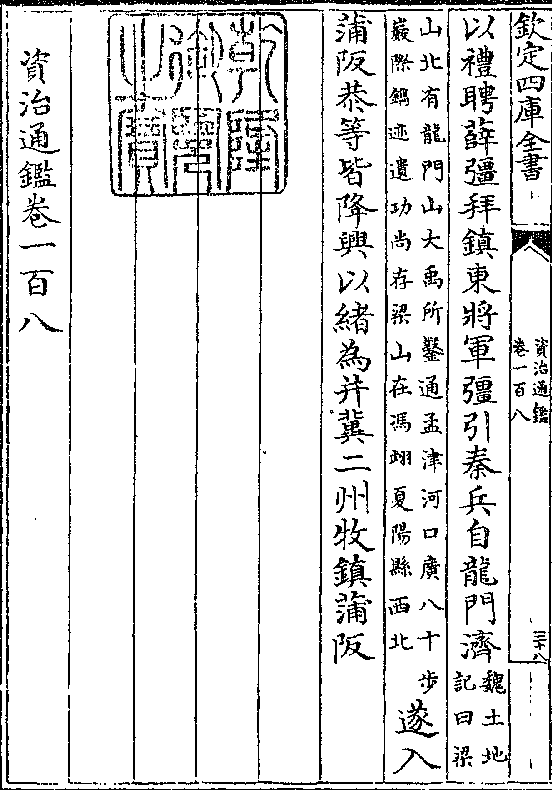 欽定四庫全書
資治通鑑
卷一百八
三十八
以禮聘薛彊拜鎮東將軍彊引秦兵自龍門濟
魏土地
記曰梁
山北有龍門山大禹所鑿通孟津河口廣八十步
巖際鐫迹遺功尚存梁山在馮翊夏陽縣西北
遂入
蒲阪恭等皆降興以緒為并冀二州牧鎮蒲阪
乾隆
御覽
之寶
資治通鑑卷一百八